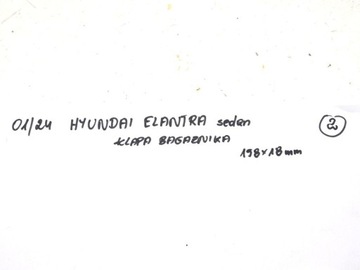 01/24 HYUNDAI ELANTRA sedan ②
KLAPA BAGAŻNIKA
198x18mm